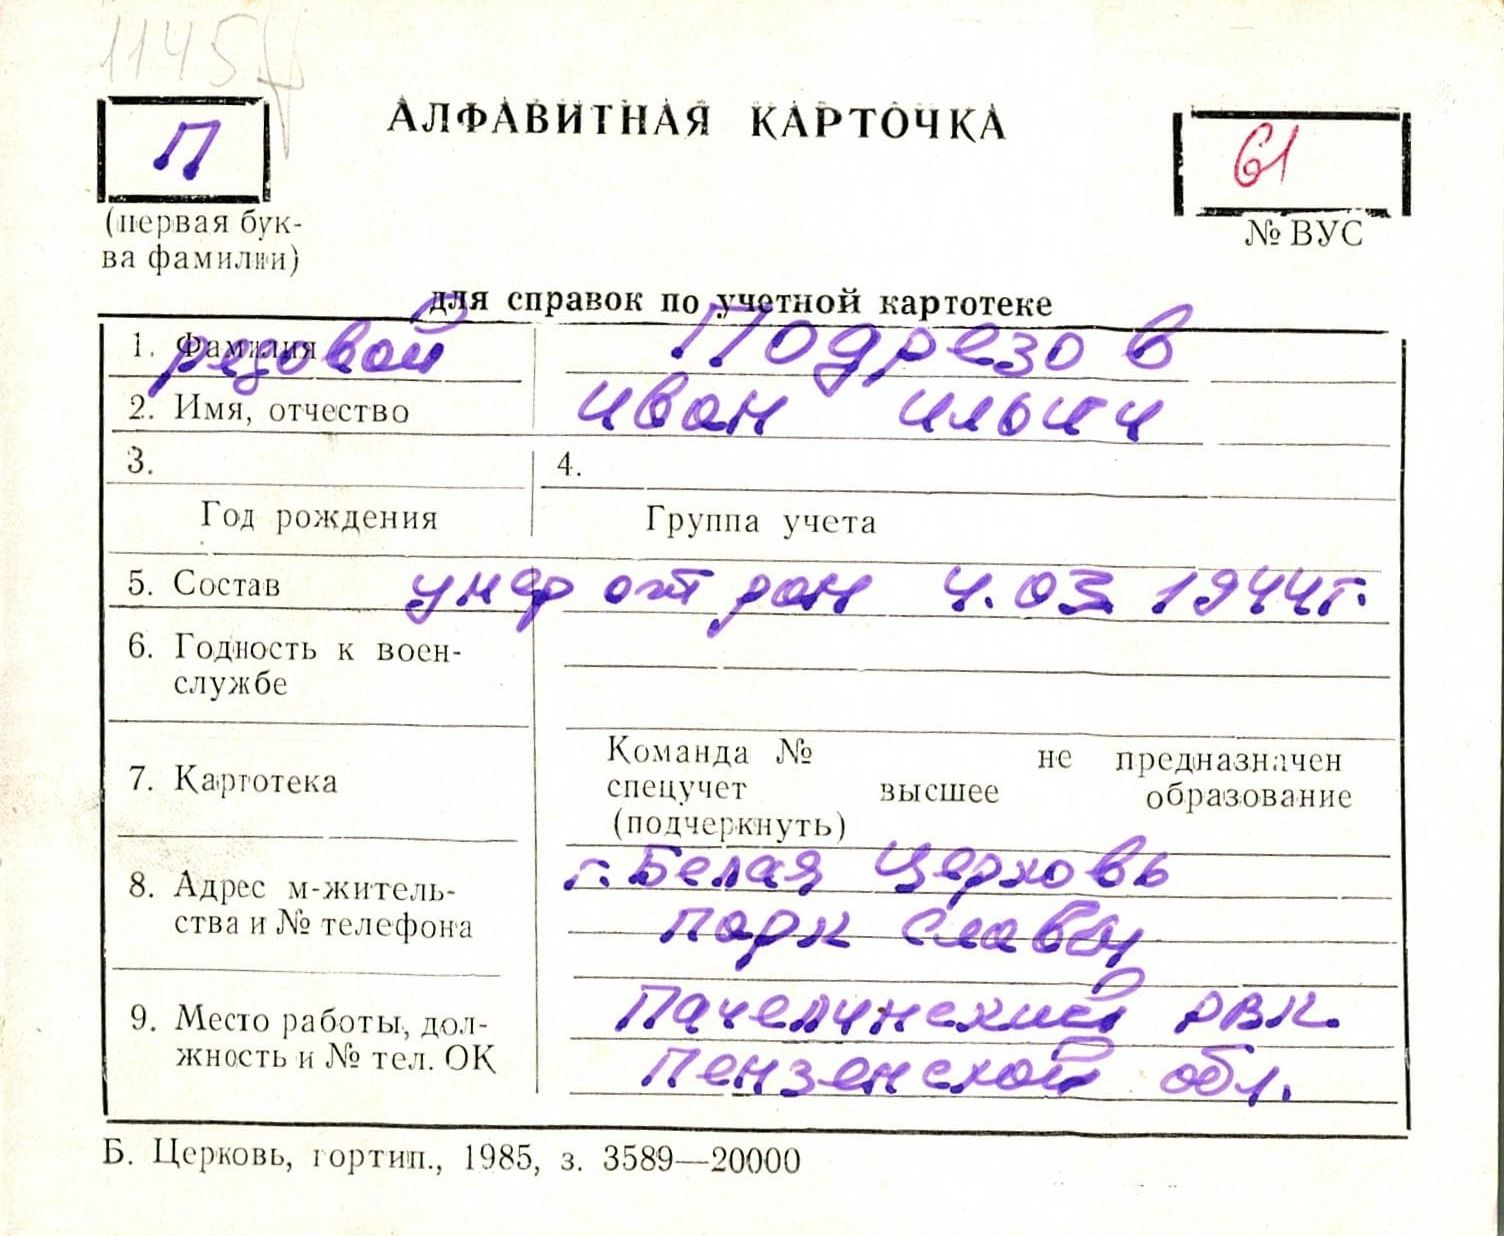 1145
АЛФАВИТНАЯ КАРТОЧКА
П
61
(первая бук-
ва фамилии)
№ ВУС
для справок по учетной картотеке
1. Фамилия рядовой Подрезов
2. Имя, отчество иван ильич
3. 4.
Год рождения Группа учета
5. Состав умер от ран 4.03 1944г.
6. Годность к воен-
службе
Команда № не предназначен
7. Картотека спецучет высшее образование
(подчеркнуть)
г. Белая Церковь
8. Адрес м-житель-
ства и № телефона парк славы
9. Место работы, дол- Пачелинский РВК.
жность и № тел. ОК Пензенской обл.
Б. Церковь, гортип., 1985, з. 3589—20000